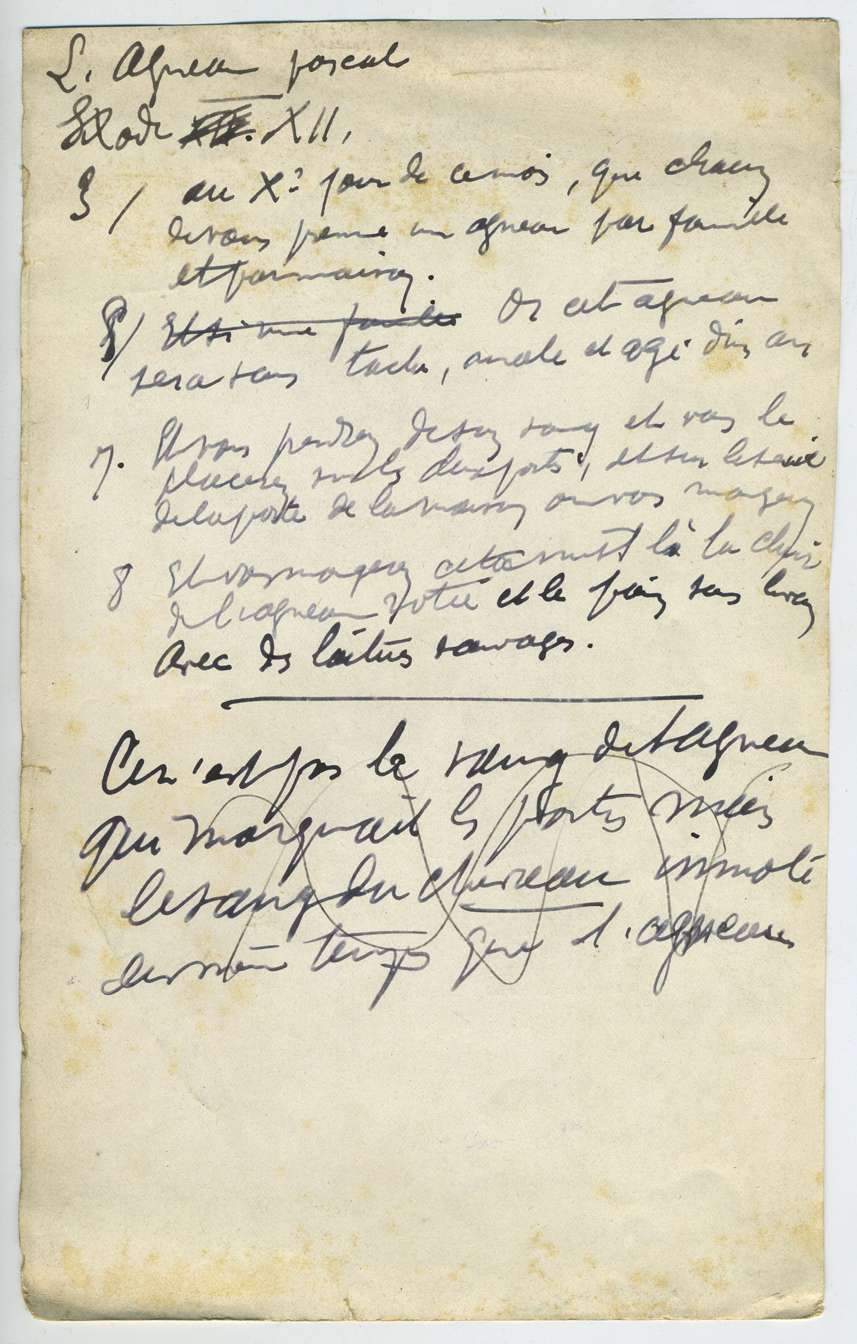 L'Agneau pascal
Exode XII.
3/ au Xe jour de ce mois, que chacun
de vous prenne un agneau par famille
et par maison.
5/ Et si une famille Or cet agneau
sera sans tache, male et agé d'un an
7. Et vous prendrez de son sang et vous le
placerez sur les deux portes, et sur le seuil
de la porte de la maison où vous mangerez
8 Et vous mangerez cette nuit là la chair
de l'agneau rotie et le pain sans levain
Avec des laitues sauvages.
Ce n'est pas le sang de l'agneau
qui marquait les portes mais
le sang du chevreau immolé
en même temps que l'agneau